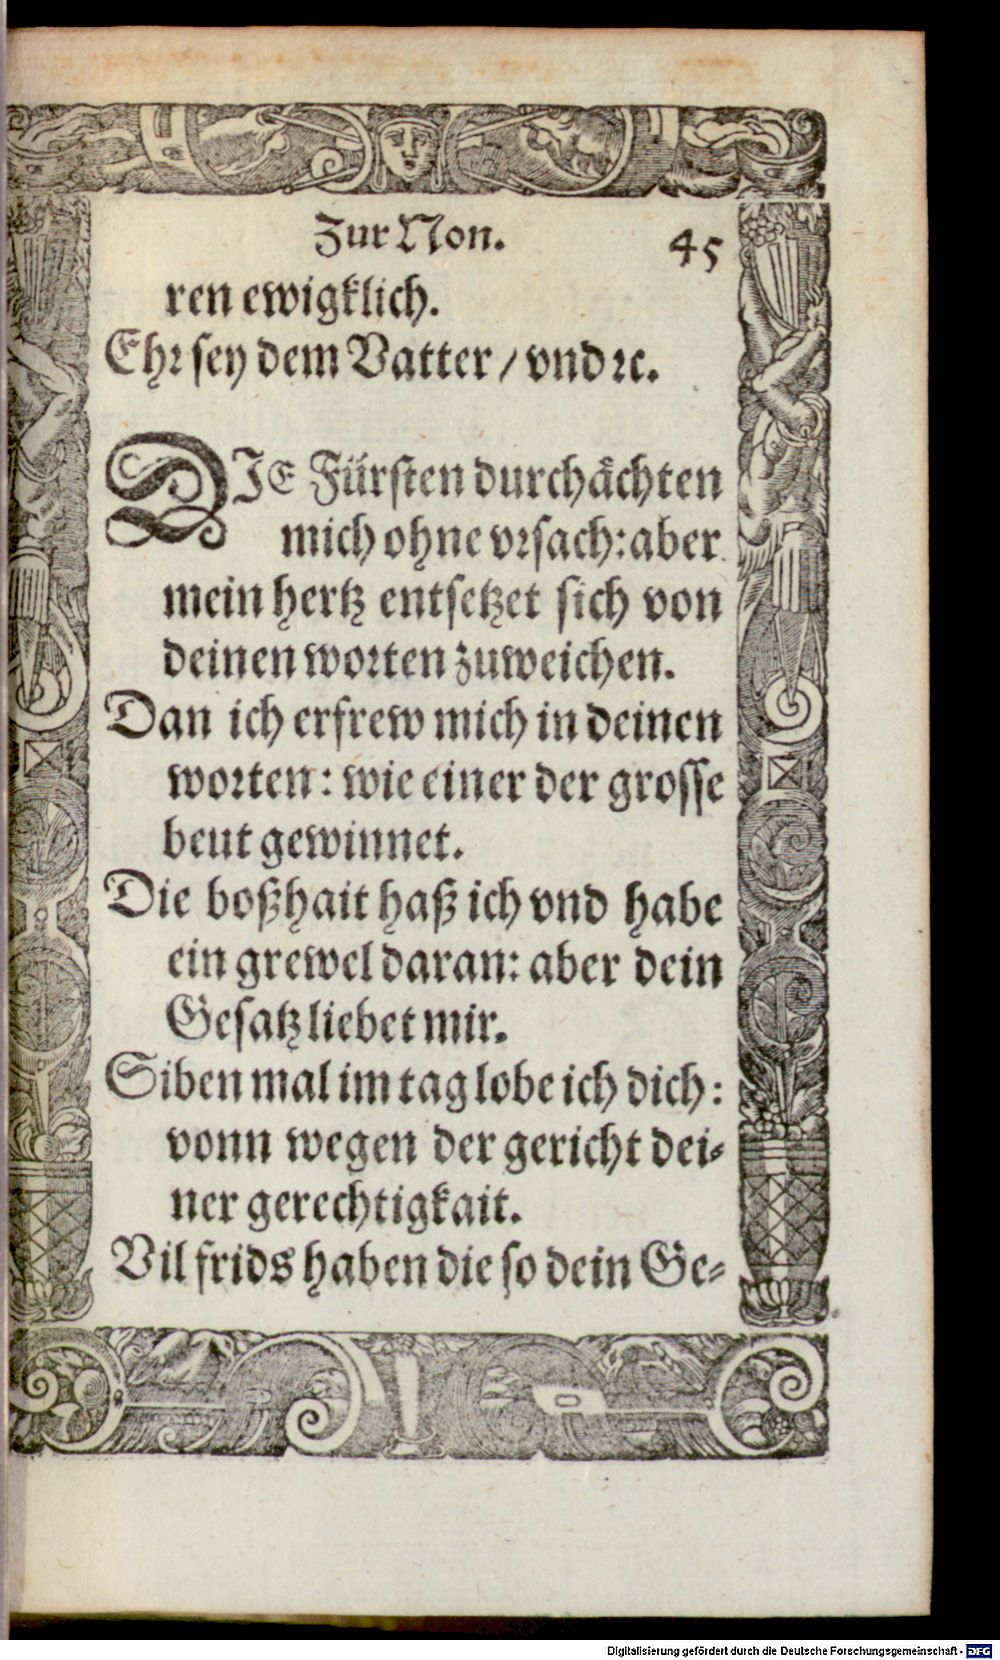 Zur Non. 45
ren ewigklich.
Ehr sey dem Vatter / vnd ꝛc.
DIE Fürsten durchächten
mich ohne vrsach: aber
mein hertz entsetzet sich von
deinen worten zuweichen.
Dan ich erfrew mich in deinen
worten: wie einer der grosse
beut gewinnet.
Die boßhait haß ich vnd habe
ein grewel daran: aber dein
Gesatz liebet mir.
Siben mal im tag lobe ich dich:
vonn wegen der gericht dei-
ner gerechtigkait.
Vil frids haben die so dein Ge-
Digitalisierung gefördert durch die Deutsche Forschungsgemeinschaft - DFG